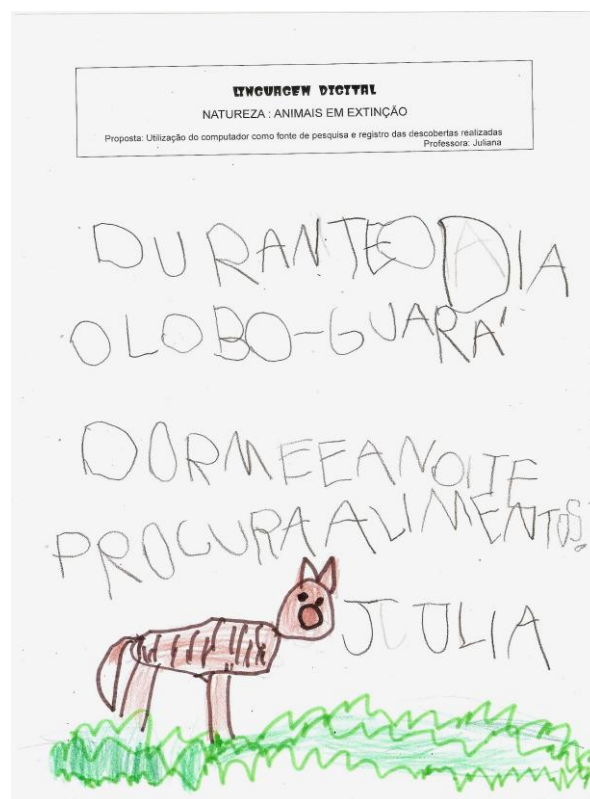 LINGUAGEM DIGITAL
NATUREZA : ANIMAIS EM EXTINÇÃO
Proposta: Utilização do computador como fonte de pesquisa e registro das descobertas realizadas
Professora: Juliana
DURANTE O DIA
O LOBO-GUARÁ
DORME E A NOITE
PROCURA ALIMENTOS.
JULIA